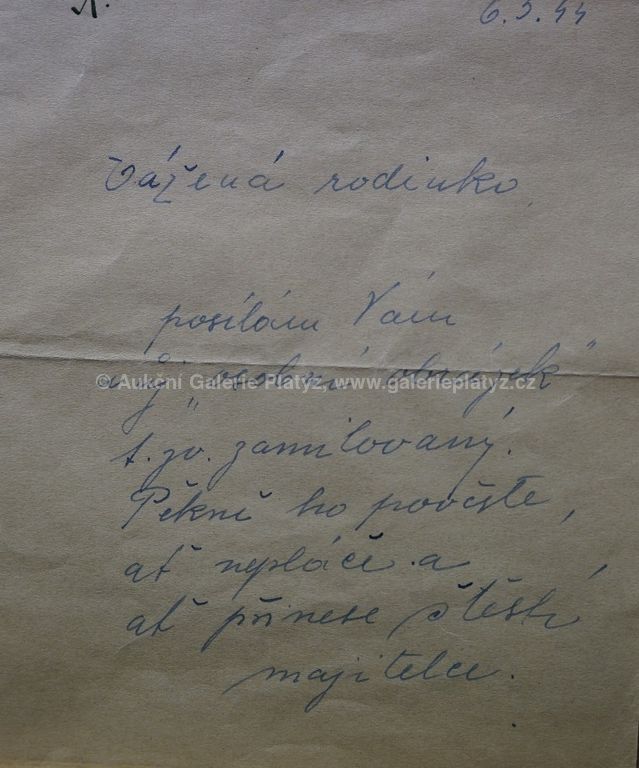 6.3.44
Vážená rodinko,
posílám Vám
můj „osobní obrázek“
© Aukční Galerie Platýz, www.galerieplatyz.cz
t.zv. zamilovaný.
Pěkně ho
ať nepláče a
ať přinese štěstí
majitelce.